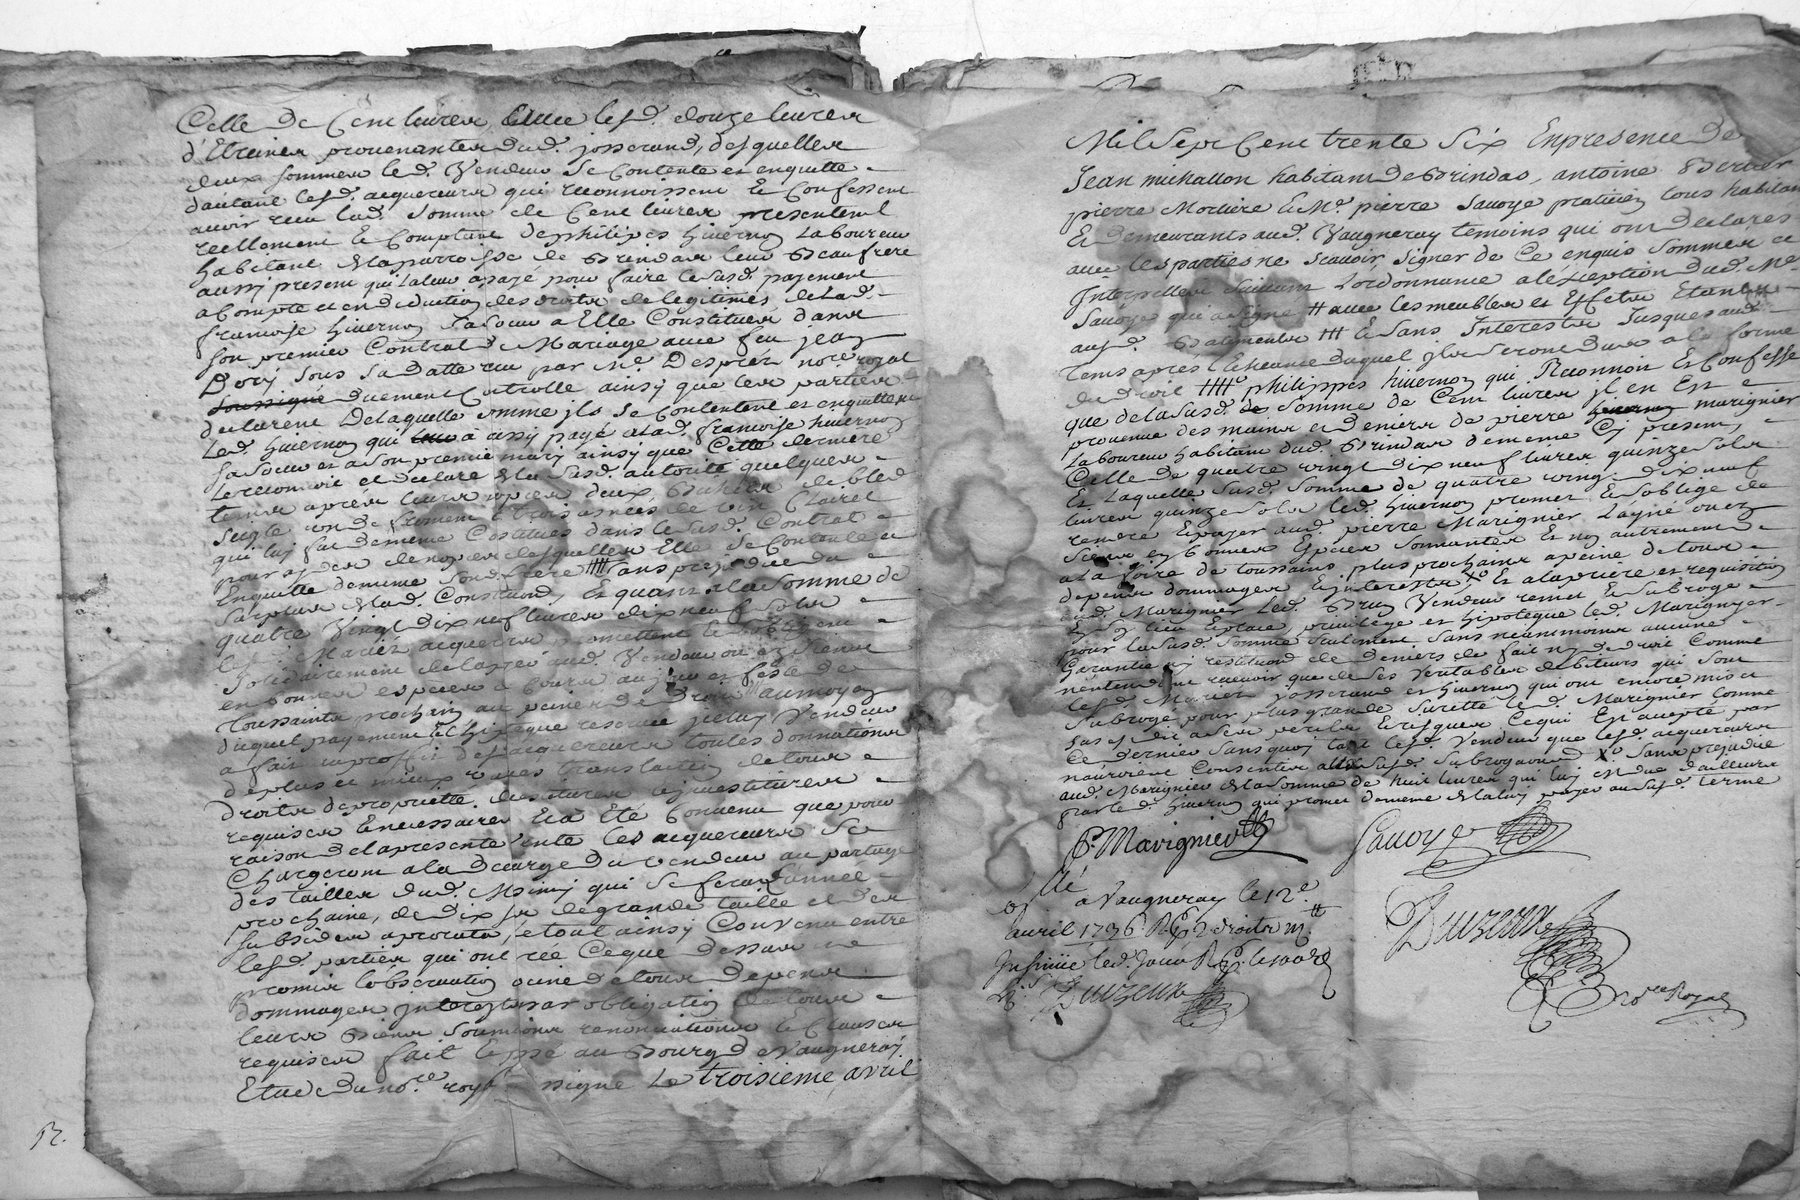 Celle de Cent livres, avec lesd. douze livres
d'Etreines provenantes dud. josserand, desquelles
deux sommes led. Vendeur se Contente et enquitte
dautant lesd. acquereurs qui reconnoissent Et Confessent
avoir receu lad. Somme de Cent livres presentement
reellement Et Comptant de philippes hivernon Laboureur
habitant de la parroisse de Brindas leur Beaufrere
aussi present qui la leur a payé pour faire le susd. payement
a Compte et en deduction des droits de legitimes de lad.
francoise hivernon Sa Soeur a Elle Constitues dans
Son premier Contrat de Mariage avec feu jean
sous sa datte receu par Me. Desprez nore. royal
soussigné duement Controllé ainsy que les parties
declarent De laquelle somme ils se Contentent et enquittent
Led. hivernon qui a aussy payé a lad. francoise hivernon
Sa Soeur et a Son premier mary ainsy que Cette derniere
Le reconnoit et declare de la susd. autorité quelques
tems apres leurs nopces deux Bichets de bled
seigle un de froment Et trois asnées de vin Clairet
qui luy fut de meme Costitués dans le susd. Contrat
pour de nopces desquelles Elle Se Contente et
Enquitte de meme Sond. frere ++++ sans prejudice du
Surplus de lad. Constitution, Et quant a la Somme de
quatre Vingt dix neuf livres dix neuf Sols
lesd. Mariés acquereurs promettent Et s'obligent
Solidairement de la payer aud. Vendeur ou es Siens
en bonnes especes a Cours au jour et feste de
Toussaints prochain au peines de droit au moyen
duquel payement Et hipoteque reservée jceluy Vendeur
a fait au proffit desd. acquereurs toutes donnations
de plus et mieux values translation de tous
droits de propriette, devestitures investitures
requises Et necessaires Et a Eté Convenu que pour
raison de la presente Vente les acquereurs se
Chargeront a la decharge du vendeur au partage
des tailles dud. Messimy qui se fera l'année
prochaine, de dix s. de grande taille et des
subsides a prorata, et tout ainsy Convenu entre
lesd. parties qui ont réé Ceque dessus et
promis l'observation a peine de tous depens
dommages Interests par obligation de tous
leurs Biens Soumissions renonciations Et Clauses
requises fait Et passé au Bourg de Vaugneray
Etude du nore. royal signé Le troisieme avril
Mil Sept Cent trente Six En presence de
Jean michallon habitant de Brindas, antoine Berlier
pierre Morliere Et Me. pierre Savoye praticien tous habitans
Et demeurants aud. Vaugneray temoins qui ont declarés
avec les parties ne scavoir signer de Ce enquis Sommes et
Interpellés suivant Lordonnance a léxception dud. Me.
Savoye qui a signé # avec les meubles et Effets Etants
aud. Batiments ### Et sans Interests Jusques aud.
tems apres l'echeance duquel jls seront deus a la forme
du droit ++++ philippes hivernon qui Reconnoit Et Confesse
que de la susd. Somme de Cent livres jl en Est
provenue des mains et deniers de pierre marignier
Laboureur habitant dud. Brindas de meme Cy present,
Celle de quatre vingt dix neuf livres quinze sols
Et Laquelle susd. Somme de quatre vingt dix neuf
livres quinze sols led. hivernon promet Et s'oblige de
rendre Et payer aud. pierre Marignier Layné ou es
Siens en bonnes Especes Sonnantes Et non autrement
a la foire de toussaints plus prochain a peine de tous
depens dommages Et interests Et a la priere et requisition
dud. Marignier Led. Vendeur remet Et subroge
en Son lieu Et place, privilége et hipoteque led. Marignier
pour la susd. Somme seulement sans neantmoins aucune
Garantie ny restitution de deniers de fait ny de droit Comme
nentendant recevoir que de ses veritables debiteurs qui sont
lesd. Mariés josserand et hivernon qui ont encore mis et
Subrogé pour plus grande Surette led. Marignier Comme
sus est dit a ses perils Et risques Cequi Est accepté par
Ce dernier sans quoy tant led. Vendeur que lesd. acquereurs
n'auroient Consentis a la susd. Subrogation Sans prejudice
aud. Marignier de la Somme de huit livres qui luy est due d'ailleurs
par led. hivernon qui promet de meme de la luy payer au susd. terme
P. Marignier
Savoye
Cllé
a Vaugneray le 12e.
avril 1736 R. droits
Insinué led. jour R.
Duizeux
Duizeux
nore. Royal
12.